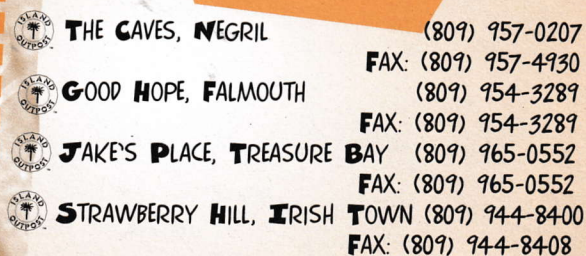 ISLAND OUTPOST THE CAVES, NEGRIL (809) 957-0207
FAX: (809) 957-4930
ISLAND OUTPOST GOOD HOPE, FALMOUTH (809) 954-3289
FAX: (809) 954-3289
ISLAND OUTPOST JAKE'S PLACE, TREASURE BAY (809) 965-0552
FAX: (809) 965-0552
ISLAND OUTPOST STRAWBERRY HILL, IRISH TOWN (809) 944-8400
FAX: (809) 944-8408